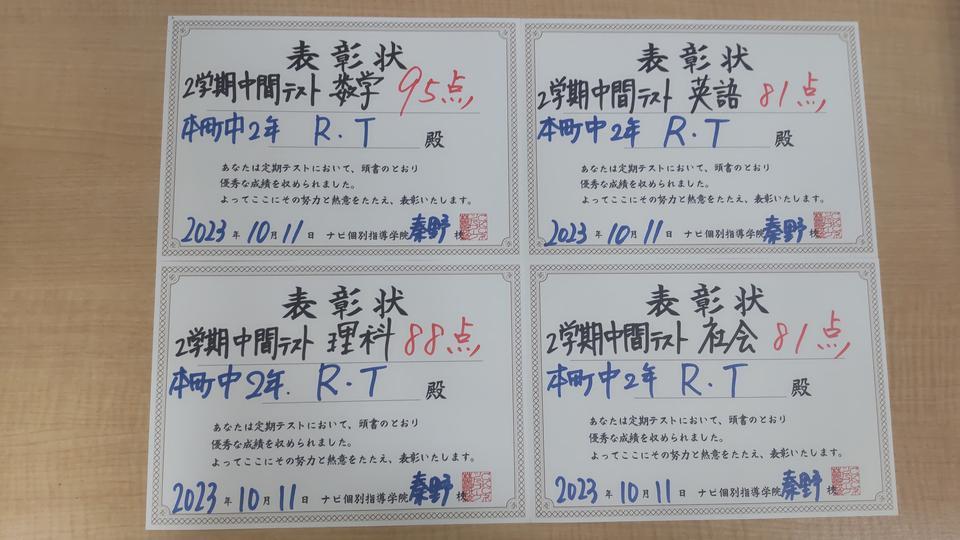 表彰状
2学期中間テスト 数学 95点
本町中2年 R・T 殿
あなたは定期テストにおいて、頭書のとおり
優秀な成績を収められました。
よってここにその努力と熱意をたたえ、表彰いたします。
2023年10月11日 ナビ個別指導学院 秦野校
表彰状
2学期中間テスト 英語 81点
本町中2年 R・T 殿
あなたは定期テストにおいて、頭書のとおり
優秀な成績を収められました。
よってここにその努力と熱意をたたえ、表彰いたします。
2023年10月11日 ナビ個別指導学院 秦野校
表彰状
2学期中間テスト 理科 88点
本町中2年. R・T 殿
あなたは定期テストにおいて、頭書のとおり
優秀な成績を収められました。
よってここにその努力と熱意をたたえ、表彰いたします。
2023年10月11日 ナビ個別指導学院 秦野校
表彰状
2学期中間テスト 社会 81点
本町中2年 R・T 殿
あなたは定期テストにおいて、頭書のとおり
優秀な成績を収められました。
よってここにその努力と熱意をたたえ、表彰いたします。
2023年10月11日 ナビ個別指導学院 秦野校